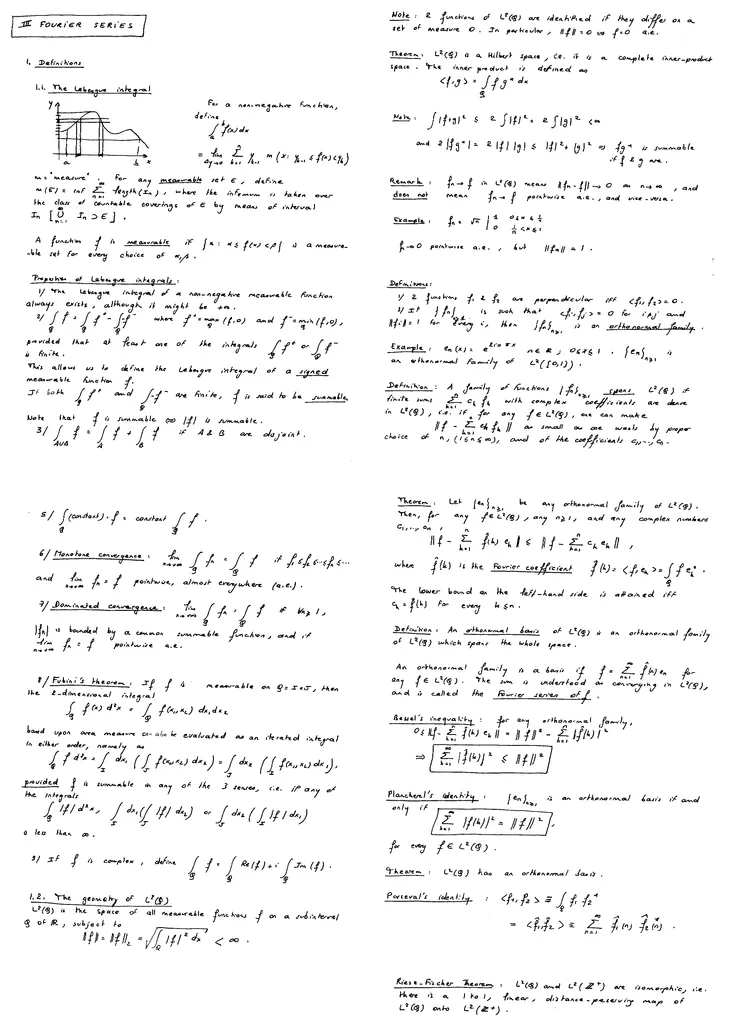 III FOURIER SERIES
1. Definitions
1.1. The Lebesgue integral
For a non-negative function,
define
∫_a^b f(x) dx
= lim_{Δy→0} Σ_{k=1}^n y_{k-1} m (x: y_{k-1} ≤ f(x) < y_k)
y
a b x
m = "measure". For any measurable set E, define
m(E) = inf Σ_{n=1}^∞ length(In), where the infimum is taken over
the class of countable coverings of E by means of interval
In [∪_{n=1}^∞ In ⊃ E].
A function f is measurable if {x: α ≤ f(x) < β} is a measura-
-ble set for every choice of α, β.
Properties of Lebesgue integrals:
1/ The Lebesgue integral of a non-negative measurable function
always exists, although it might be +∞.
2/ ∫_Q f = ∫_Q f⁺ - ∫_Q f⁻ where f⁺ = max (f,0) and f⁻ = min (f,0),
provided that at least one of the integrals ∫_Q f⁺ or ∫_Q f⁻
is finite.
This allows us to define the Lebesgue integral of a signed
measurable function f.
If both ∫_Q f⁺ and ∫_Q f⁻ are finite, f is said to be summable
Note that f is summable ⇔ |f| is summable.
3/ ∫_{A∪B} f = ∫_A f + ∫_B f if A & B are disjoint.
5/ ∫_Q (constant) · f = constant ∫_Q f.
6/ Monotone convergence: lim_{n→∞} ∫_Q fn = ∫_Q f if f1 ≤ f2 ≤ … ≤ fn ≤ …
and lim_{n→∞} fn = f pointwise, almost everywhere (a.e.).
7/ Dominated convergence: lim_{n→∞} ∫_Q fn = ∫_Q f if ∀n ≥ 1,
|fn| is bounded by a common summable function, and if
lim_{n→∞} fn = f pointwise a.e.
8/ Fubini's theorem: If f is measurable on Q = I×J, then
the 2-dimensional integral
∫_Q f(x) d²x = ∫_Q f(x1,x2) dx1 dx2
based upon area measure can also be evaluated as an iterated integral
in either order, namely as
∫_Q f d²x = ∫_I dx1 (∫_J f(x1,x2) dx2) = ∫_J dx2 (∫_I f(x1,x2) dx1),
provided f is summable in any of the 3 senses, i.e. if any of
the integrals
∫_Q |f| d²x, ∫_I dx1 (∫_J |f| dx2) or ∫_J dx2 (∫_I |f| dx1)
is less than ∞.
9/ If f is complex, define ∫_Q f = ∫_Q Re(f) + i ∫_Q Im(f).
1.2. The geometry of L²(Q)
L²(Q) is the space of all measurable functions f on a subinterval
Q of R, subject to
‖f‖ = ‖f‖₂ = √(∫_Q |f|² dx) < ∞.
Note: 2 functions of L²(Q) are identified if they differ on a
set of measure 0. In particular, ‖f‖ = 0 ⇔ f = 0 a.e.
Theorem: L²(Q) is a Hilbert space, i.e. it is a complete inner-product
space. The inner product is defined as
<f,g> = ∫_Q f g* dx
Note: ∫|f+g|² ≤ 2 ∫|f|² + 2 ∫|g|² < ∞
and 2|fg*| = 2|f||g| ≤ |f|² + |g|² ⇒ fg* is summable
if f & g are.
Remark: fn → f in L²(Q) means ‖fn - f‖ → 0 as n → ∞, and
does not mean fn → f pointwise a.e., and vice-versa.
Example: fn = √n | 1 0 ≤ x ≤ 1/n
| 0 1/n < x ≤ 1
fn → 0 pointwise a.e., but ‖fn‖ = 1.
Definitions:
1/ 2 functions f1 & f2 are perpendicular iff <f1,f2> = 0.
2/ If {fn} is such that <fi,fj> = 0 for i≠j and
‖fi‖ = 1 for every i, then {fn}_{n≥1} is an orthonormal family.
Example: en(x) = e^{2inπx} n ∈ Z, 0 ≤ x ≤ 1. {en}_{n≥1} is
an orthonormal family of L²([0,1]).
Definition: A family of functions {fn}_{n≥1} spans L²(Q) if
finite sums Σ_{k=1}^n ck fk with complex coefficients are dense
in L²(Q), i.e. if, for any f ∈ L²(Q), one can make
‖f - Σ_{k=1}^n ck fk‖ as small as one wants by proper
choice of n, (1 ≤ n ≤ ∞), and of the coefficients c1,…,cn.
Theorem: Let {en}_{n≥1} be any orthonormal family of L²(Q).
Then, for any f ∈ L²(Q), any n ≥ 1, and any complex numbers
c1,…, cn,
‖f - Σ_{k=1}^n f̂(k) ek‖ ≤ ‖f - Σ_{k=1}^n ck ek‖,
where f̂(k) is the Fourier coefficient f̂(k) = <f,ek> = ∫_Q f ek*.
The lower bound on the left-hand side is attained iff
ck = f̂(k) for every k ≤ n.
Definition: An orthonormal basis of L²(Q) is an orthonormal family
of L²(Q) which spans the whole space.
An orthonormal family is a basis if f = Σ_{n=1}^∞ f̂(n) en for
any f ∈ L²(Q). The sum is understood as converging in L²(Q),
and is called the Fourier series of f.
Bessel's inequality: for any orthonormal family,
0 ≤ ‖f - Σ_{k=1}^n f̂(k) ek‖² = ‖f‖² - Σ_{k=1}^n |f̂(k)|²
⇒ Σ_{k=1}^∞ |f̂(k)|² ≤ ‖f‖²
Plancherel's identity: {en}_{n≥1} is an orthonormal basis if and
only if Σ_{k=1}^∞ |f̂(k)|² = ‖f‖²,
for every f ∈ L²(Q).
Theorem: L²(Q) has an orthonormal basis.
Parseval's identity: <f1,f2> ≡ ∫_Q f1 f2*
= <f̂1,f̂2> ≡ Σ_{n=1}^∞ f̂1(n) f̂2*(n).
Riesz-Fischer Theorem: L²(Q) and L²(Z⁺) are isomorphic, i.e.
there is a 1 to 1, linear, distance-preserving map of
L²(Q) onto L²(Z⁺).